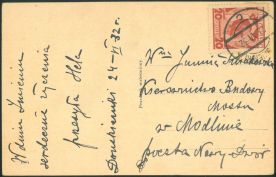 W dniu Imienin
serdeczne życzenia
przesyła Hela
Druskieniki 24-VI 32 r.
Wna Janina
Kierownictwo Budowy
Mostu
w Modlinie
poczta Nowy Dwór